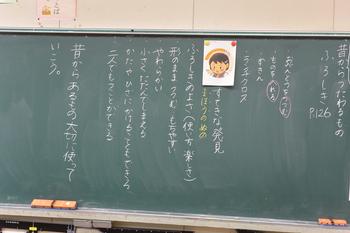 昔からつたわるもの
ふろしき P.126
・おべんとうをつつむ
・ものを入れる
・ずきん
・ランチクロス
すてきな発見
まほうのぬの
ふろしきのよさ(使い方 楽しさ)
形のままつつむ もちやすい
やわらかい
小さくたたんでしまえる
かたやひざにかけることもできる
二人でもつことができる
昔からあるものを大切に使って
いこう。